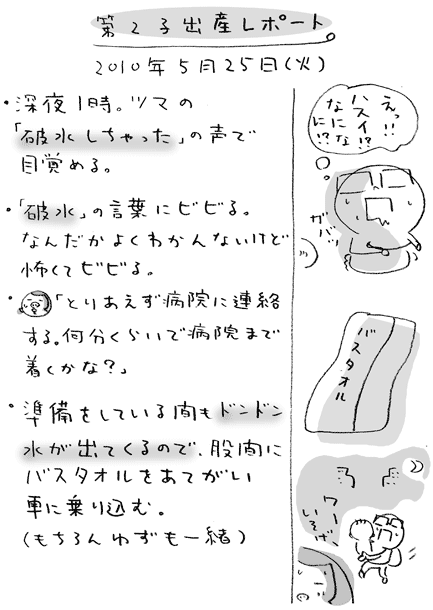 第2子出産レポート
2010年5月25日(火)
・深夜1時。ツマの
「破水しちゃった」の声で
目覚める。
・「破水」の言葉にビビる。
なんだかよくわかんないけど
怖くてビビる。
・「とりあえず病院に連絡
する。何分くらいで病院まで
着くかな?」
・準備をしている間もドンドン
水が出てくるので、股間に
バスタオルをあてがい
車に乗り込む。
(もちろんゆずも一緒)
えっ!!
ハスイ!?
なになな
にに!?
ガバッ
バスタオル
ワー
いそげ、